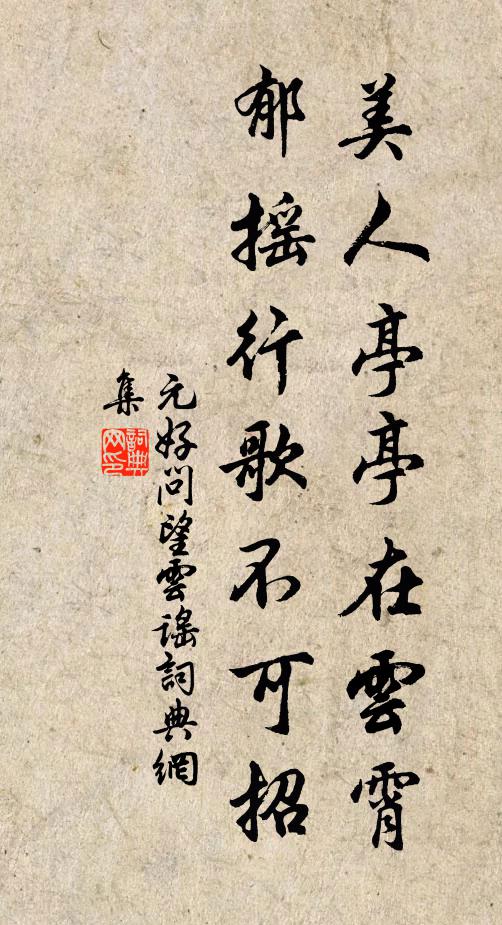 美人亭亭在雲霄
郁摇行歌不可招
元好问望雲謠詞典網
集
詞典网印